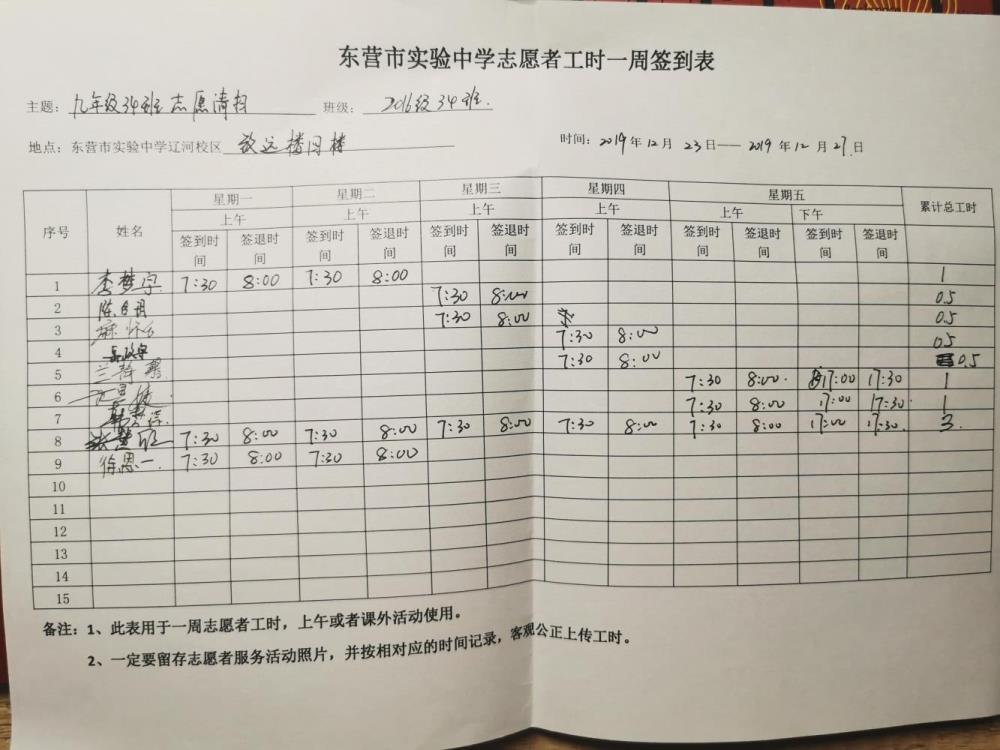 东营市实验中学志愿者工时一周签到表
主题: 九年级34班志愿清扫 班级: 2016级34班.
地点: 东营市实验中学辽河校区 致远楼 时间: 2019年12月23日——2019年12月27日
序号 姓名 星期一 星期二 星期三 星期四 星期五 累计总工时
上午 上午 上午 上午 上午 下午
签到时间 签退时间 签到时间 签退时间 签到时间 签退时间 签到时间 签退时间 签到时间 签退时间 签到时间 签退时间
1 李梦宇 7:30 8:00 7:30 8:00 1
2 7:30 8:00 0.5
3 7:30 8:00 0.5
4 7:30 8:00 0.5
5 兰 7:30 8:00 0.5
6 7:30 8:00 17:00 17:30 1
7 7:30 8:00 17:00 17:30 1
8 7:30 8:00 7:30 8:00 7:30 8:00 7:30 8:00 7:30 8:00 17:00 17:30 3
9 徐恩一 7:30 8:00 7:30 8:00
10
11
12
13
14
15
备注: 1、此表用于一周志愿者工时，上午或者课外活动使用。
2、一定要留存志愿者服务活动照片，并按相对应的时间记录，客观公正上传工时。